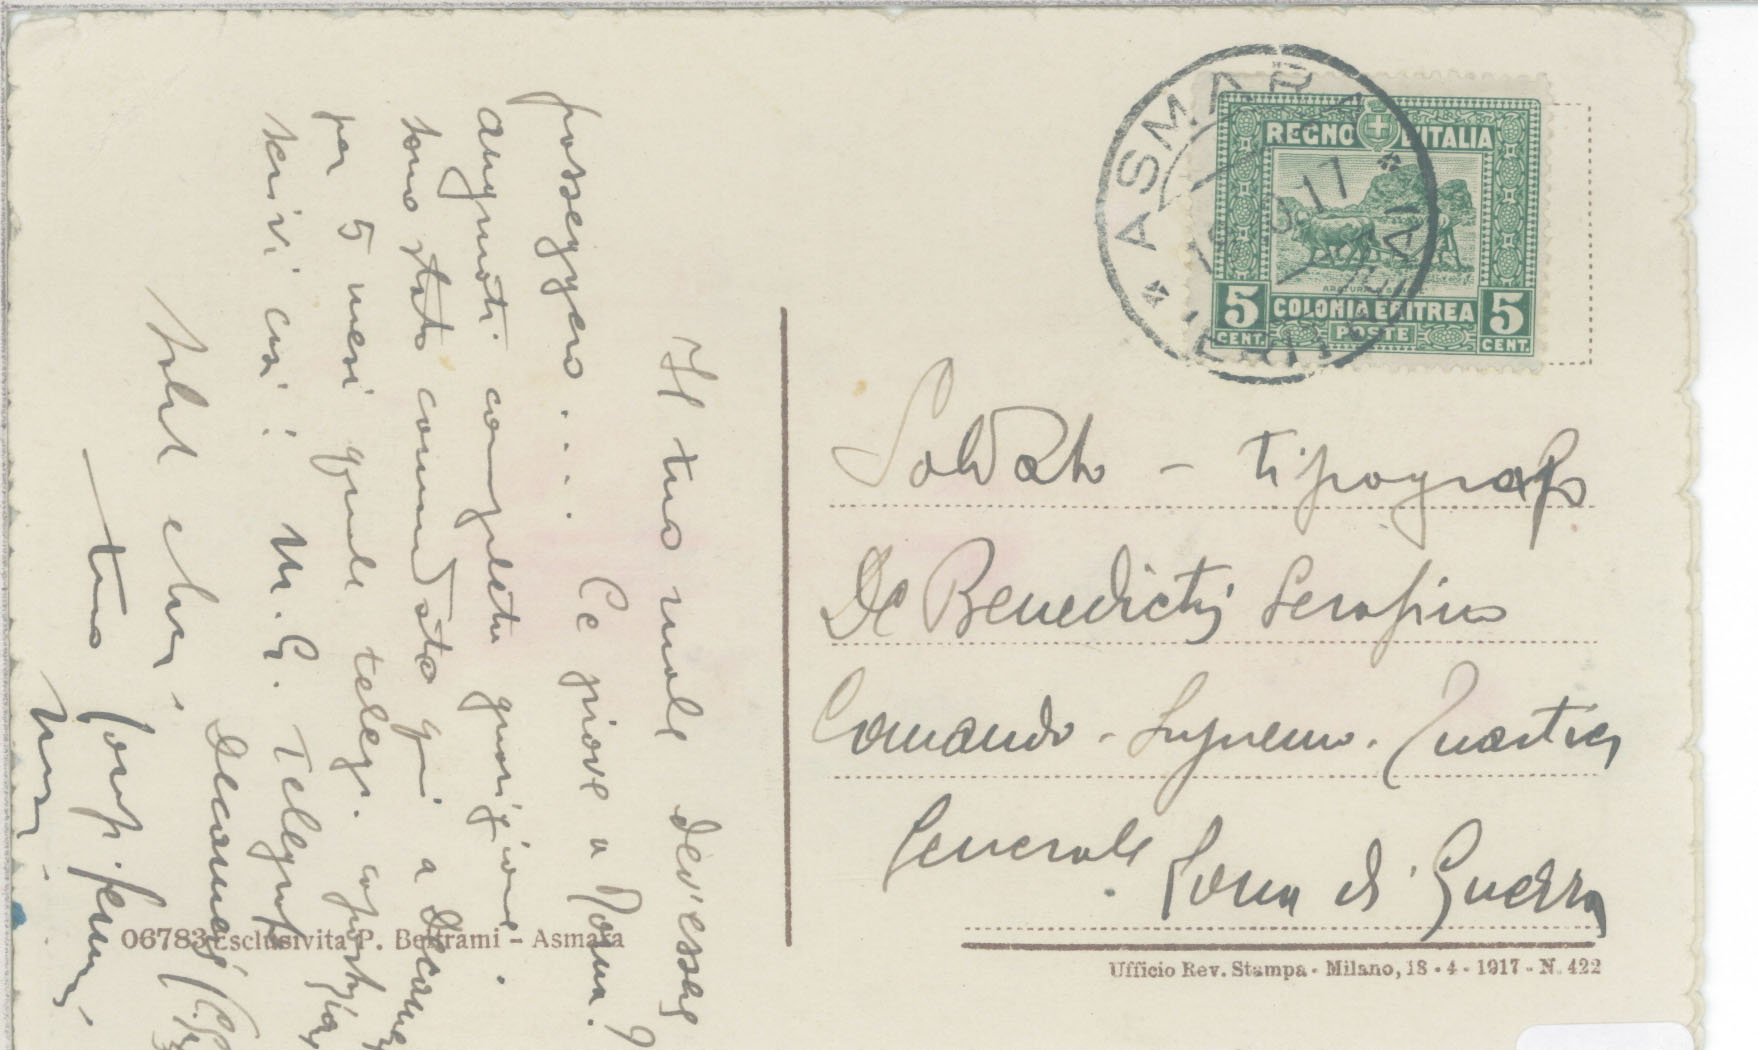 Il tuo male dev'esser
passeggero.... Ce piove a Roma?
auguroti completa guarigione.
sono stato comandato qui a Decamer
per 5 mesi quale telegr.
scrivi così: M. G. Telegraf
Decamerè
Saluti
tuo
06783 Esclusivita P. Beltrami - Asmara
ASMARA
17
ERITREA
REGNO D'ITALIA
ARATURA
5 CENT. COLONIA ERITREA POSTE 5 CENT.
Soldato - tipografo
De Benedictis Serafino
Comando - Supremo. Quartier
Generale Zona di Guerra
Ufficio Rev. Stampa - Milano, 18 - 4 - 1917 - N. 422